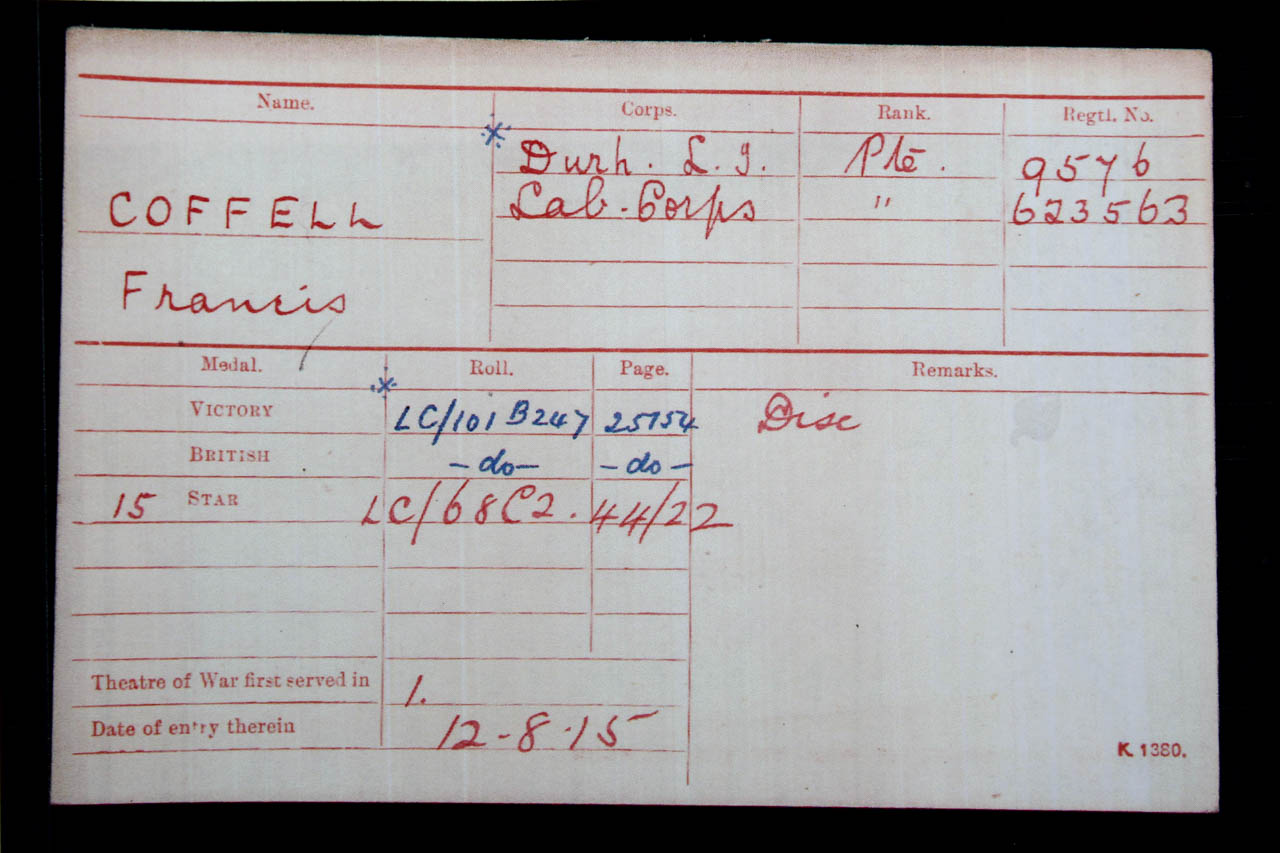 Name. Corps. Rank. Regtl. No.
* Durh. L. I. Pte. 9576
COFFELL Lab. Corps " 623563
Francis
Medal. Roll. Page. Remarks.
* VICTORY LC/101 B247 25154 Disc
BRITISH -do- -do-
15 STAR LC/68C2. 44/22
Theatre of War first served in 1.
Date of entry therein 12-8-15
K. 1380.